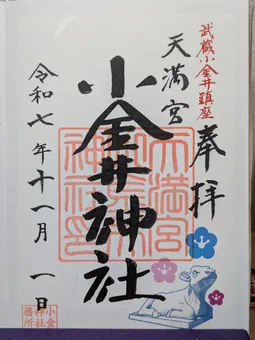 武蔵小金井鎮座
奉拝
天満宮
小金井神社
令和七年十一月一日
天満宮
小金井
神社印
小金井
神社
務所